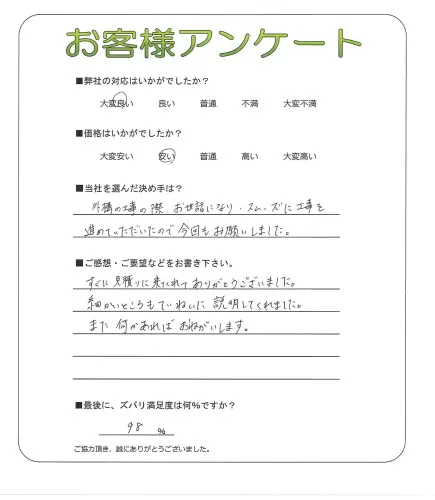 お客様アンケート
■弊社の対応はいかがでしたか？
大変良い 良い 普通 不満 大変不満
■価格はいかがでしたか？
大変安い 安い 普通 高い 大変高い
■当社を選んだ決め手は？
外構の工事の際、お世話になり、スムーズに工事を
進めていただいたので今回もお願いしました。
■ご感想・ご要望などをお書き下さい。
すぐに見積りに来てくれてありがとうございました。
細かいところもていねいに説明してくれました。
また何かあればおねがいします。
■最後に、ズバリ満足度は何％ですか？
98 ％
ご協力頂き、誠にありがとうございました。